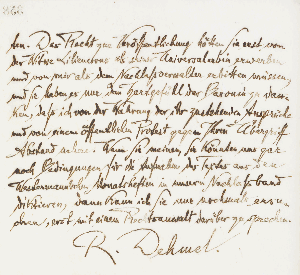 ten. Das Recht zur Veröffentlichung hätten Sie erst von
der Witwe Liliencrons als seiner Universalerbin erwerben
und von mir als dem Nachlaßverwalter erbitten müssen,
und Sie haben es nur dem Zartgefühl der Baronin zu dan-
ken, daß ich von der Wahrung der ihr zustehenden Ansprüche
und von einem öffentlichen Protest gegen Ihren Übergriff
Abstand nehme. Wenn Sie meinen, Sie könnten uns gar
noch Bedingungen für die Aufnahme des Textes aus den
Westermannschen Monatsheften in unsern Nachlaßband
diktieren, dann kann ich Sie nur nochmals ersu-
chen, erst mit einem Rechtsanwalt darüber zu sprechen.
R Dehmel